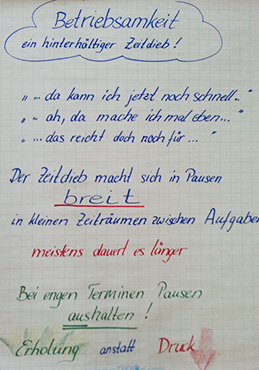 Betriebsamkeit
ein hinterhältiger Zeitdieb!
"... da kann ich jetzt noch schnell..."
"... ah, da mache ich mal eben..."
"... das reicht doch noch für..."
Der Zeitdieb macht sich in Pausen
breit
in kleinen Zeiträumen zwischen Aufgaben
meistens dauert es länger
Bei engen Terminen Pausen
aushalten!
Erholung anstatt Druck